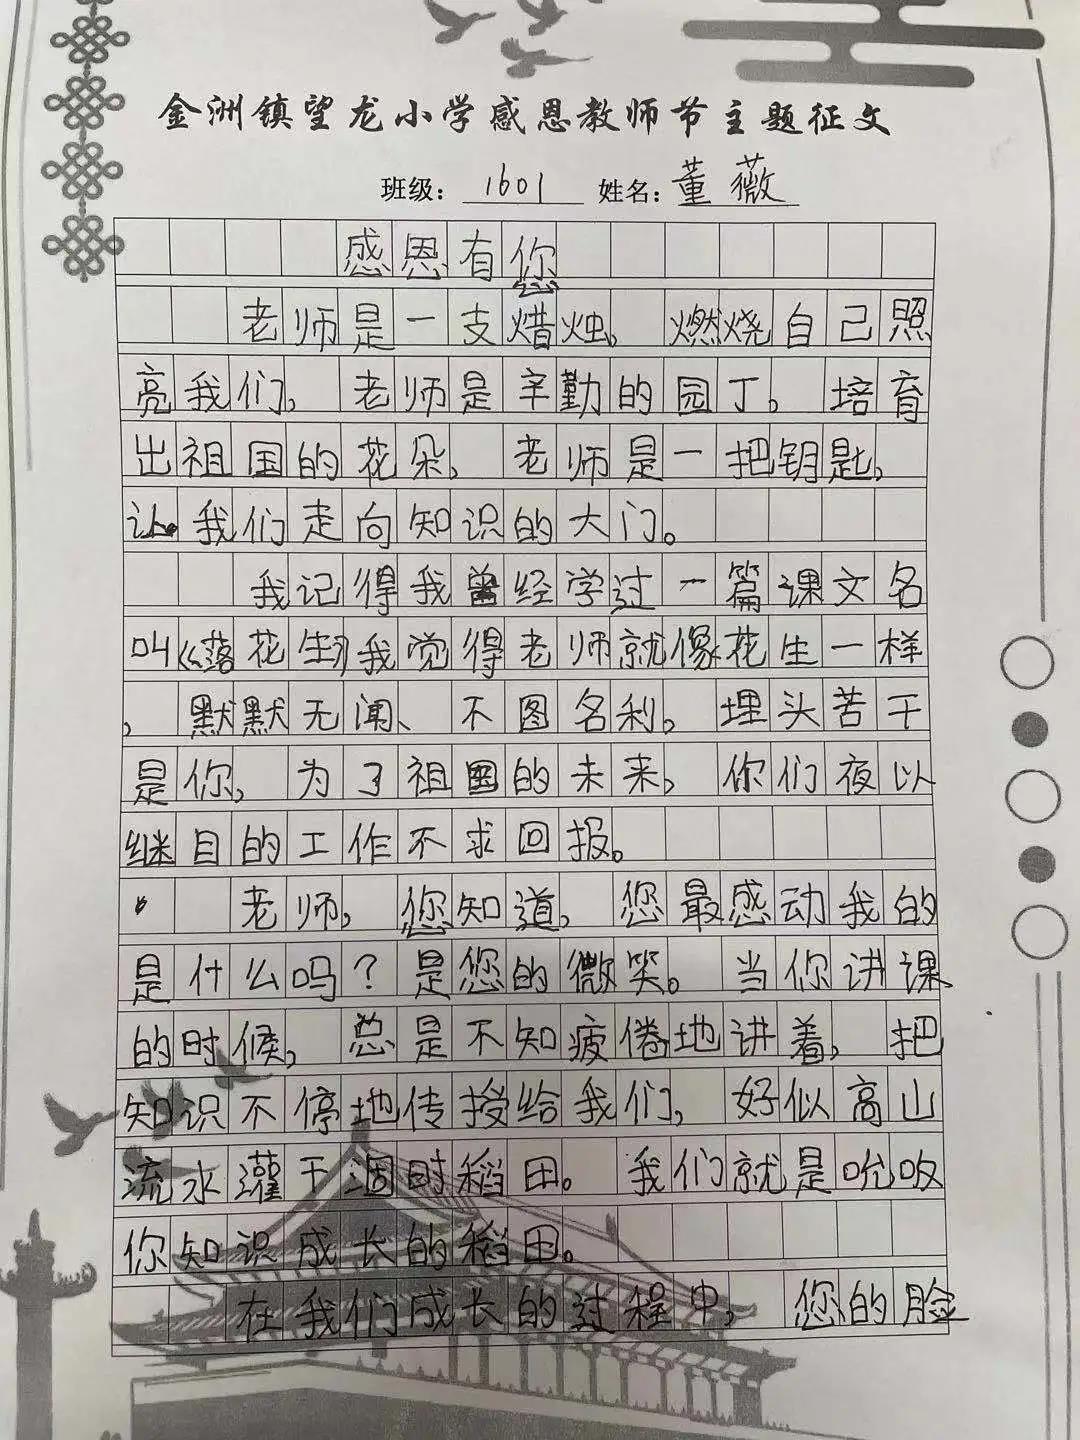 金洲镇望龙小学感恩教师节主题征文
班级：1601 姓名：董薇
感恩有您
老师是一支蜡烛，燃烧自己照
亮我们，老师是辛勤的园丁。培育
出祖国的花朵，老师是一把钥匙，
让我们走向知识的大门。
我记得我曾经学过一篇课文名
叫《落花生》我觉得老师就像花生一样
，默默无闻、不图名利。埋头苦干
是你，为了祖国的未来，你们夜以
继目的工作不求回报。
老师，您知道，您最感动我的
是什么吗？是您的微笑。当你讲课
的时候，总是不知疲倦地讲着，把
知识不停地传授给我们，好似高山
流水灌干涸时稻田。我们就是吮吸
你知识成长的稻田。
在我们成长的过程中，您的脸